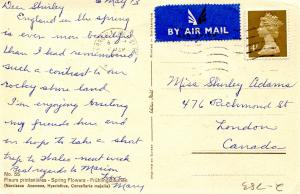 May 13
Dear Shirley
England in the spring
is even more beautiful
than I had remembered,
such a contrast to our
rocky shore land.
I'm enjoying visiting
my friends here and
hope to take a short
trip to Wales next week
Best regards to Marion
Love
Mary
No. 55
Fleurs printanières - Spring Flowers -
(Narcissus Jonesses, Hyacinthus, Convallaria majalis)
BY AIR MAIL
Miss Shirley Adams
476 Richmond St
London
Canada
E32-C